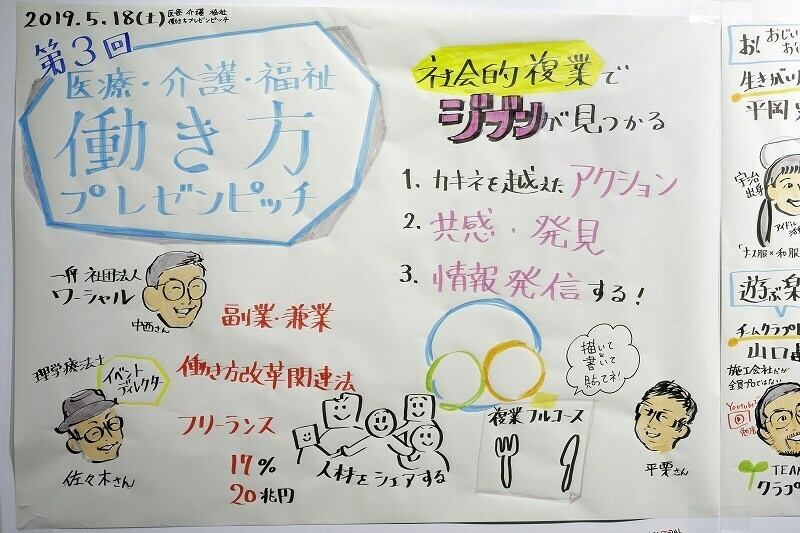 2019.5.18(土)
医療 介護 福祉
働き方プレゼンピッチ
第3回
医療・介護・福祉
働き方
プレゼンピッチ
一般 社団法人
ワーシャル
中西さん
副業・兼業
理学療法士
イベント
ディレクター
佐々木さん
働き方改革関連法
フリーランス
17%
20兆円
人材をシェアする
社会的複業で
ジブンが見つかる
1. カキネを越えたアクション
2. 共感・発見
3. 情報発信する!
描いて
書いて
貼ってネ!
複業フルコース
平栗さん
お!
おじい
おば
生きがい
平岡
宇治
出身
アイドル
「ナス服×和服
遊ぶ楽
チームクラプ
山口
施工会社だが
全員プロではない
Youtube
勉強
TEAM
クラプ